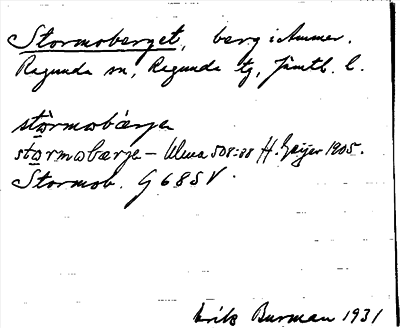 Stormoberget, berg i Ammer.
Ragunda sn, Ragunda tg, Jämtl. l.
stormobærge
stormobærge – Ulma 508:88 H. Geijer 1905.
Stormob. G 68 S V.
Erik Burman 1931